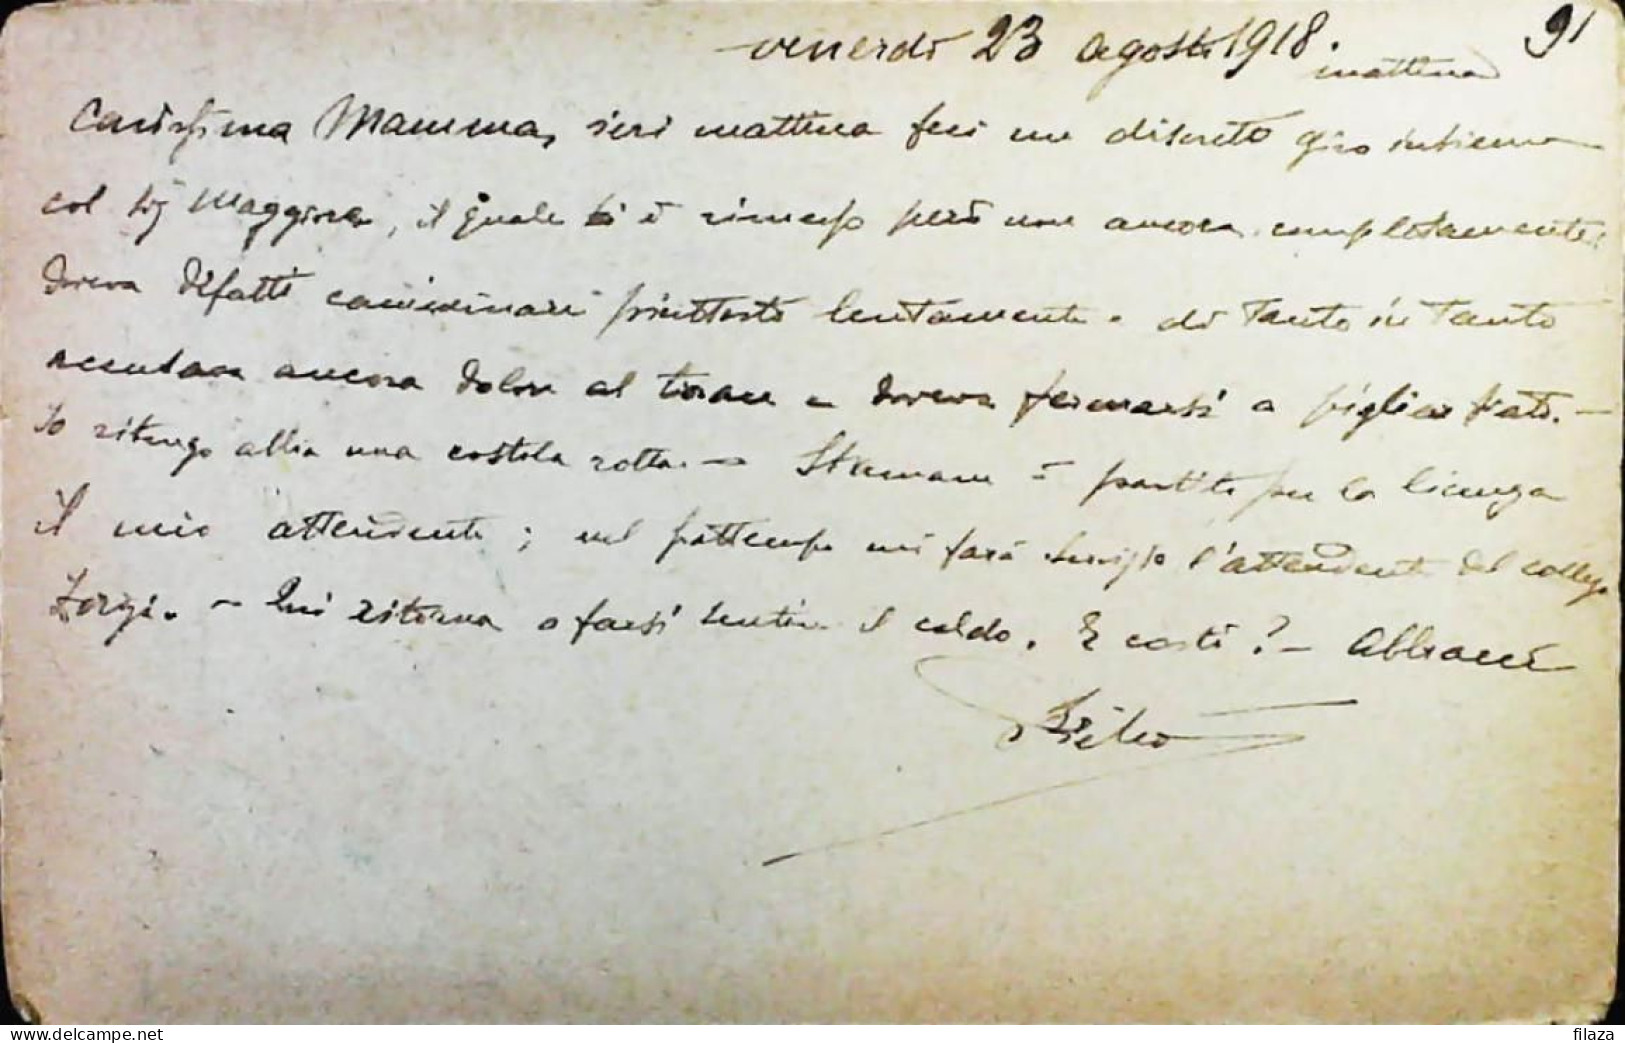 venerdì 23 agosto 1918.
mattina
91
Carissima Mamma, ieri mattina feci un discreto giro insieme
col Sig Maggiore, il quale si è rimesso però non ancora completamente:
doveva difatti camminare piuttosto lentamente. di tanto in tanto
accusava ancora dolore al torace e doveva fermarsi a pigliar fiato. —
Io ritengo abbia una costola rotta. — Stamane è partito per la licenza
il mio attendente; nel frattempo mi farà servizio l'attendente del collega
Zorzi. — Qui ritorna a farsi sentire il caldo. E costì? — Abbracci